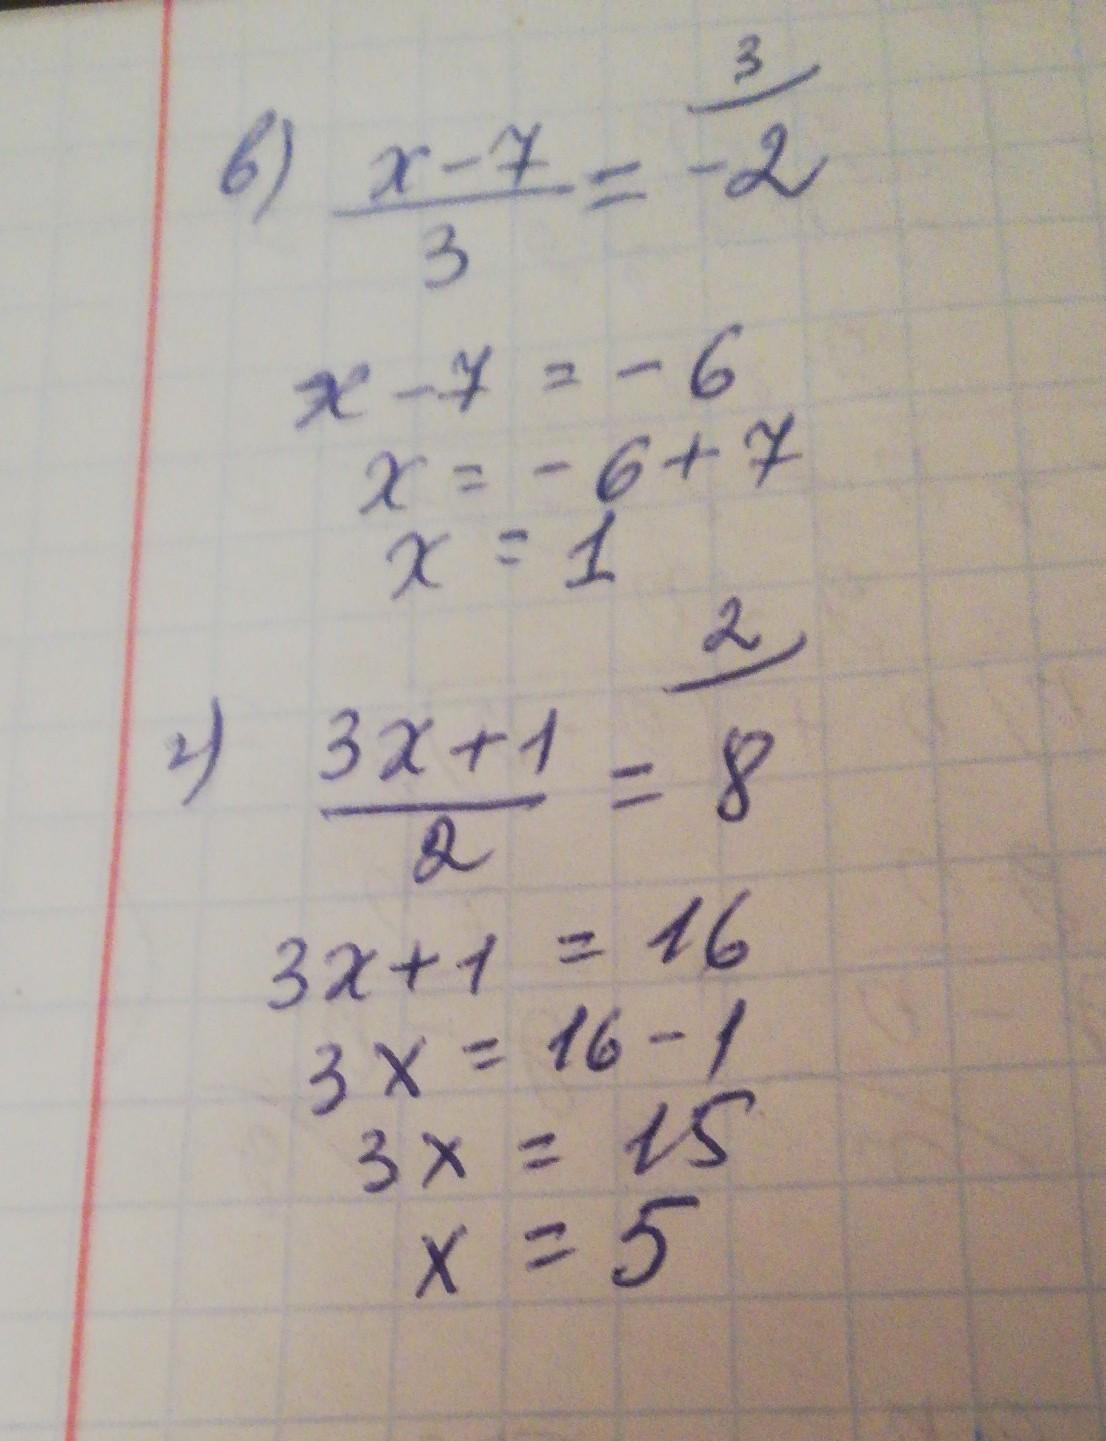 в) (x-7)/3 = -2 3/
x - 7 = - 6
x = - 6 + 7
x = 1
г) (3x+1)/2 = 8 2/
3x + 1 = 16
3x = 16 - 1
3x = 15
x = 5